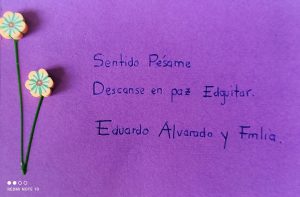 Sentido Pésame
Descanse en paz Edguitar.
Eduardo Alvarado y Fmlia.
REDMI NOTE 10